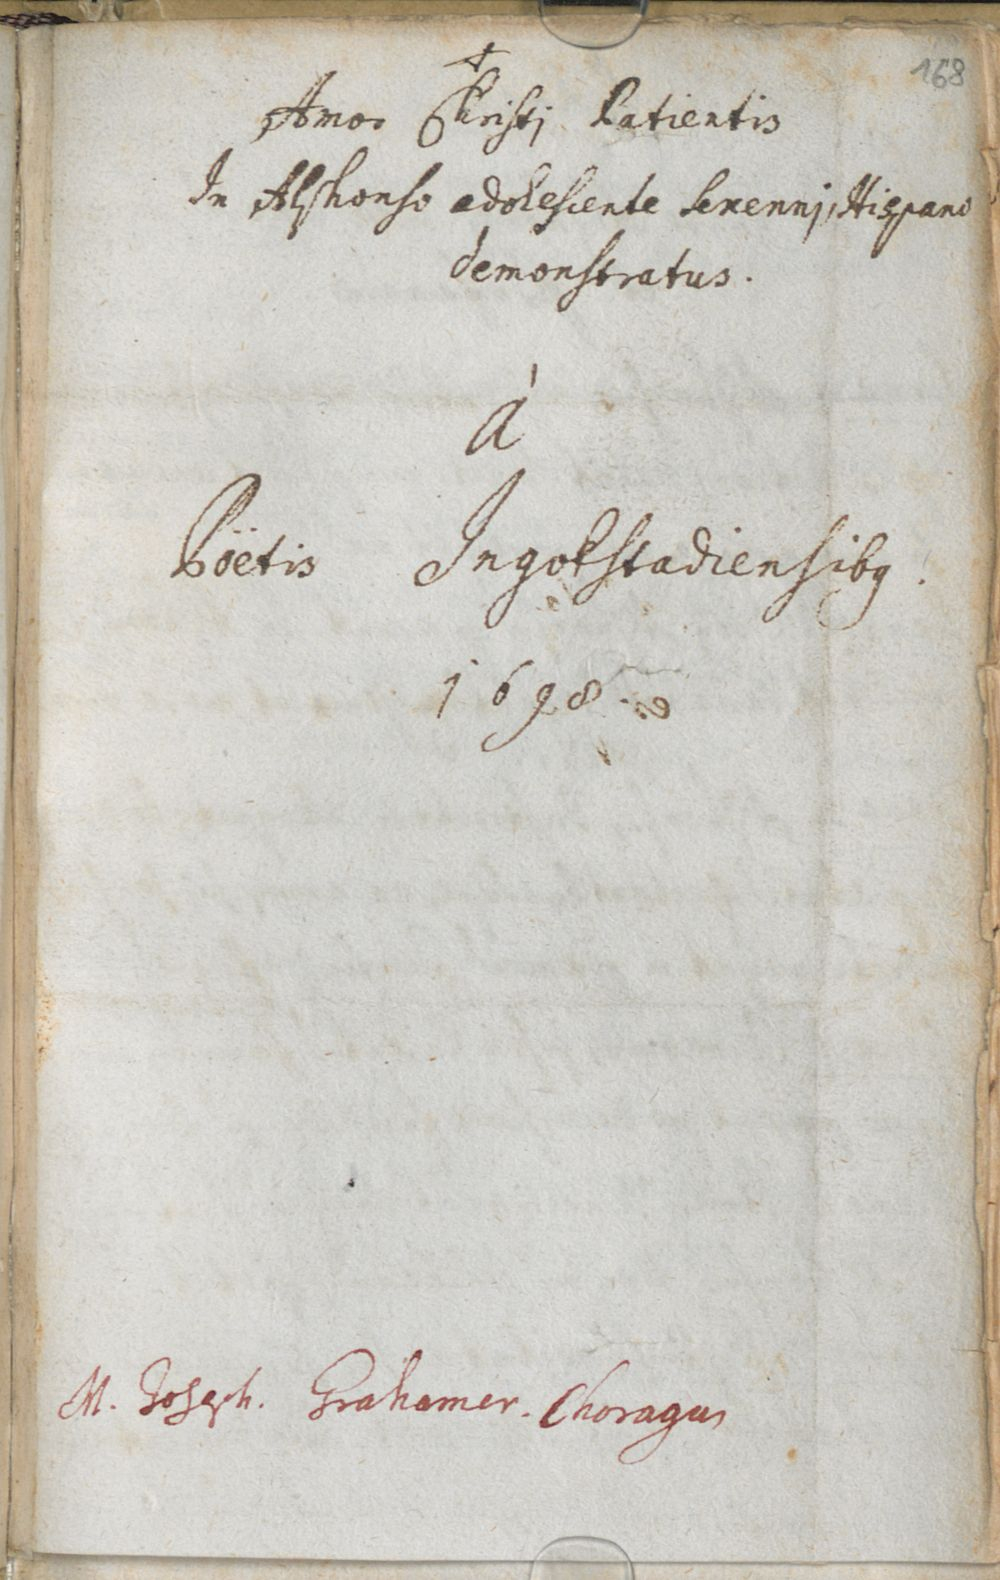 168
Amor Christi Patientis
In Alphonso adolescente serennj, Hispano
demonstratus.
á
Pöetis Ingolstadiensibq.
1698
M. Joseph. Grahamer. Choragus